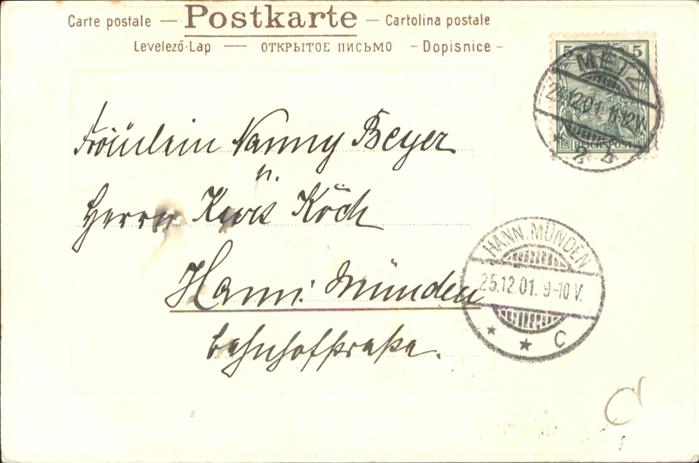 Carte postale — Postkarte — Cartolina postale
Levelező-Lap — ОТКРЫТОЕ ПИСЬМО - Dopisnice -
5 5
METZ
12.01. 11-12V.
REICHSPOST
Fräulein Nanny Beyer
u.
Herrn Köch
Hann. Münden
Bahnhofstraße.
HANN. MÜNDEN
25.12.01. 9-10 V.
* * C